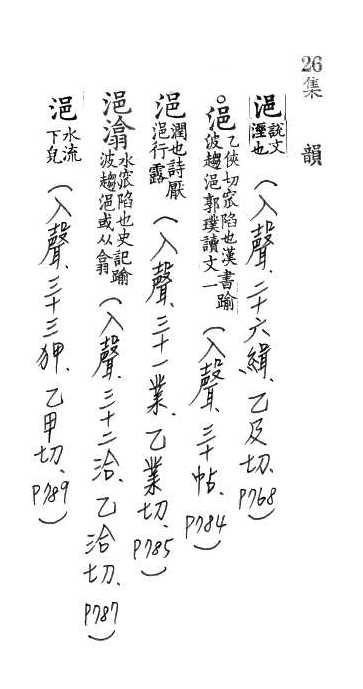 26
集韻
浥說文溼也(入聲、二十六緝、乙及切、P768)
。浥乙俠切窊陷也漢書踰波趨浥郭璞讀文一(入聲、三十帖、P784)
浥潤也詩厭浥行露(入聲、三十一業、乙業切、P785)
浥瀹水窊陷也史記踰波趨浥或从翕(入聲、三十二洽、乙洽切、P787)
浥水流下皃(入聲、三十三狎、乙甲切、P789)